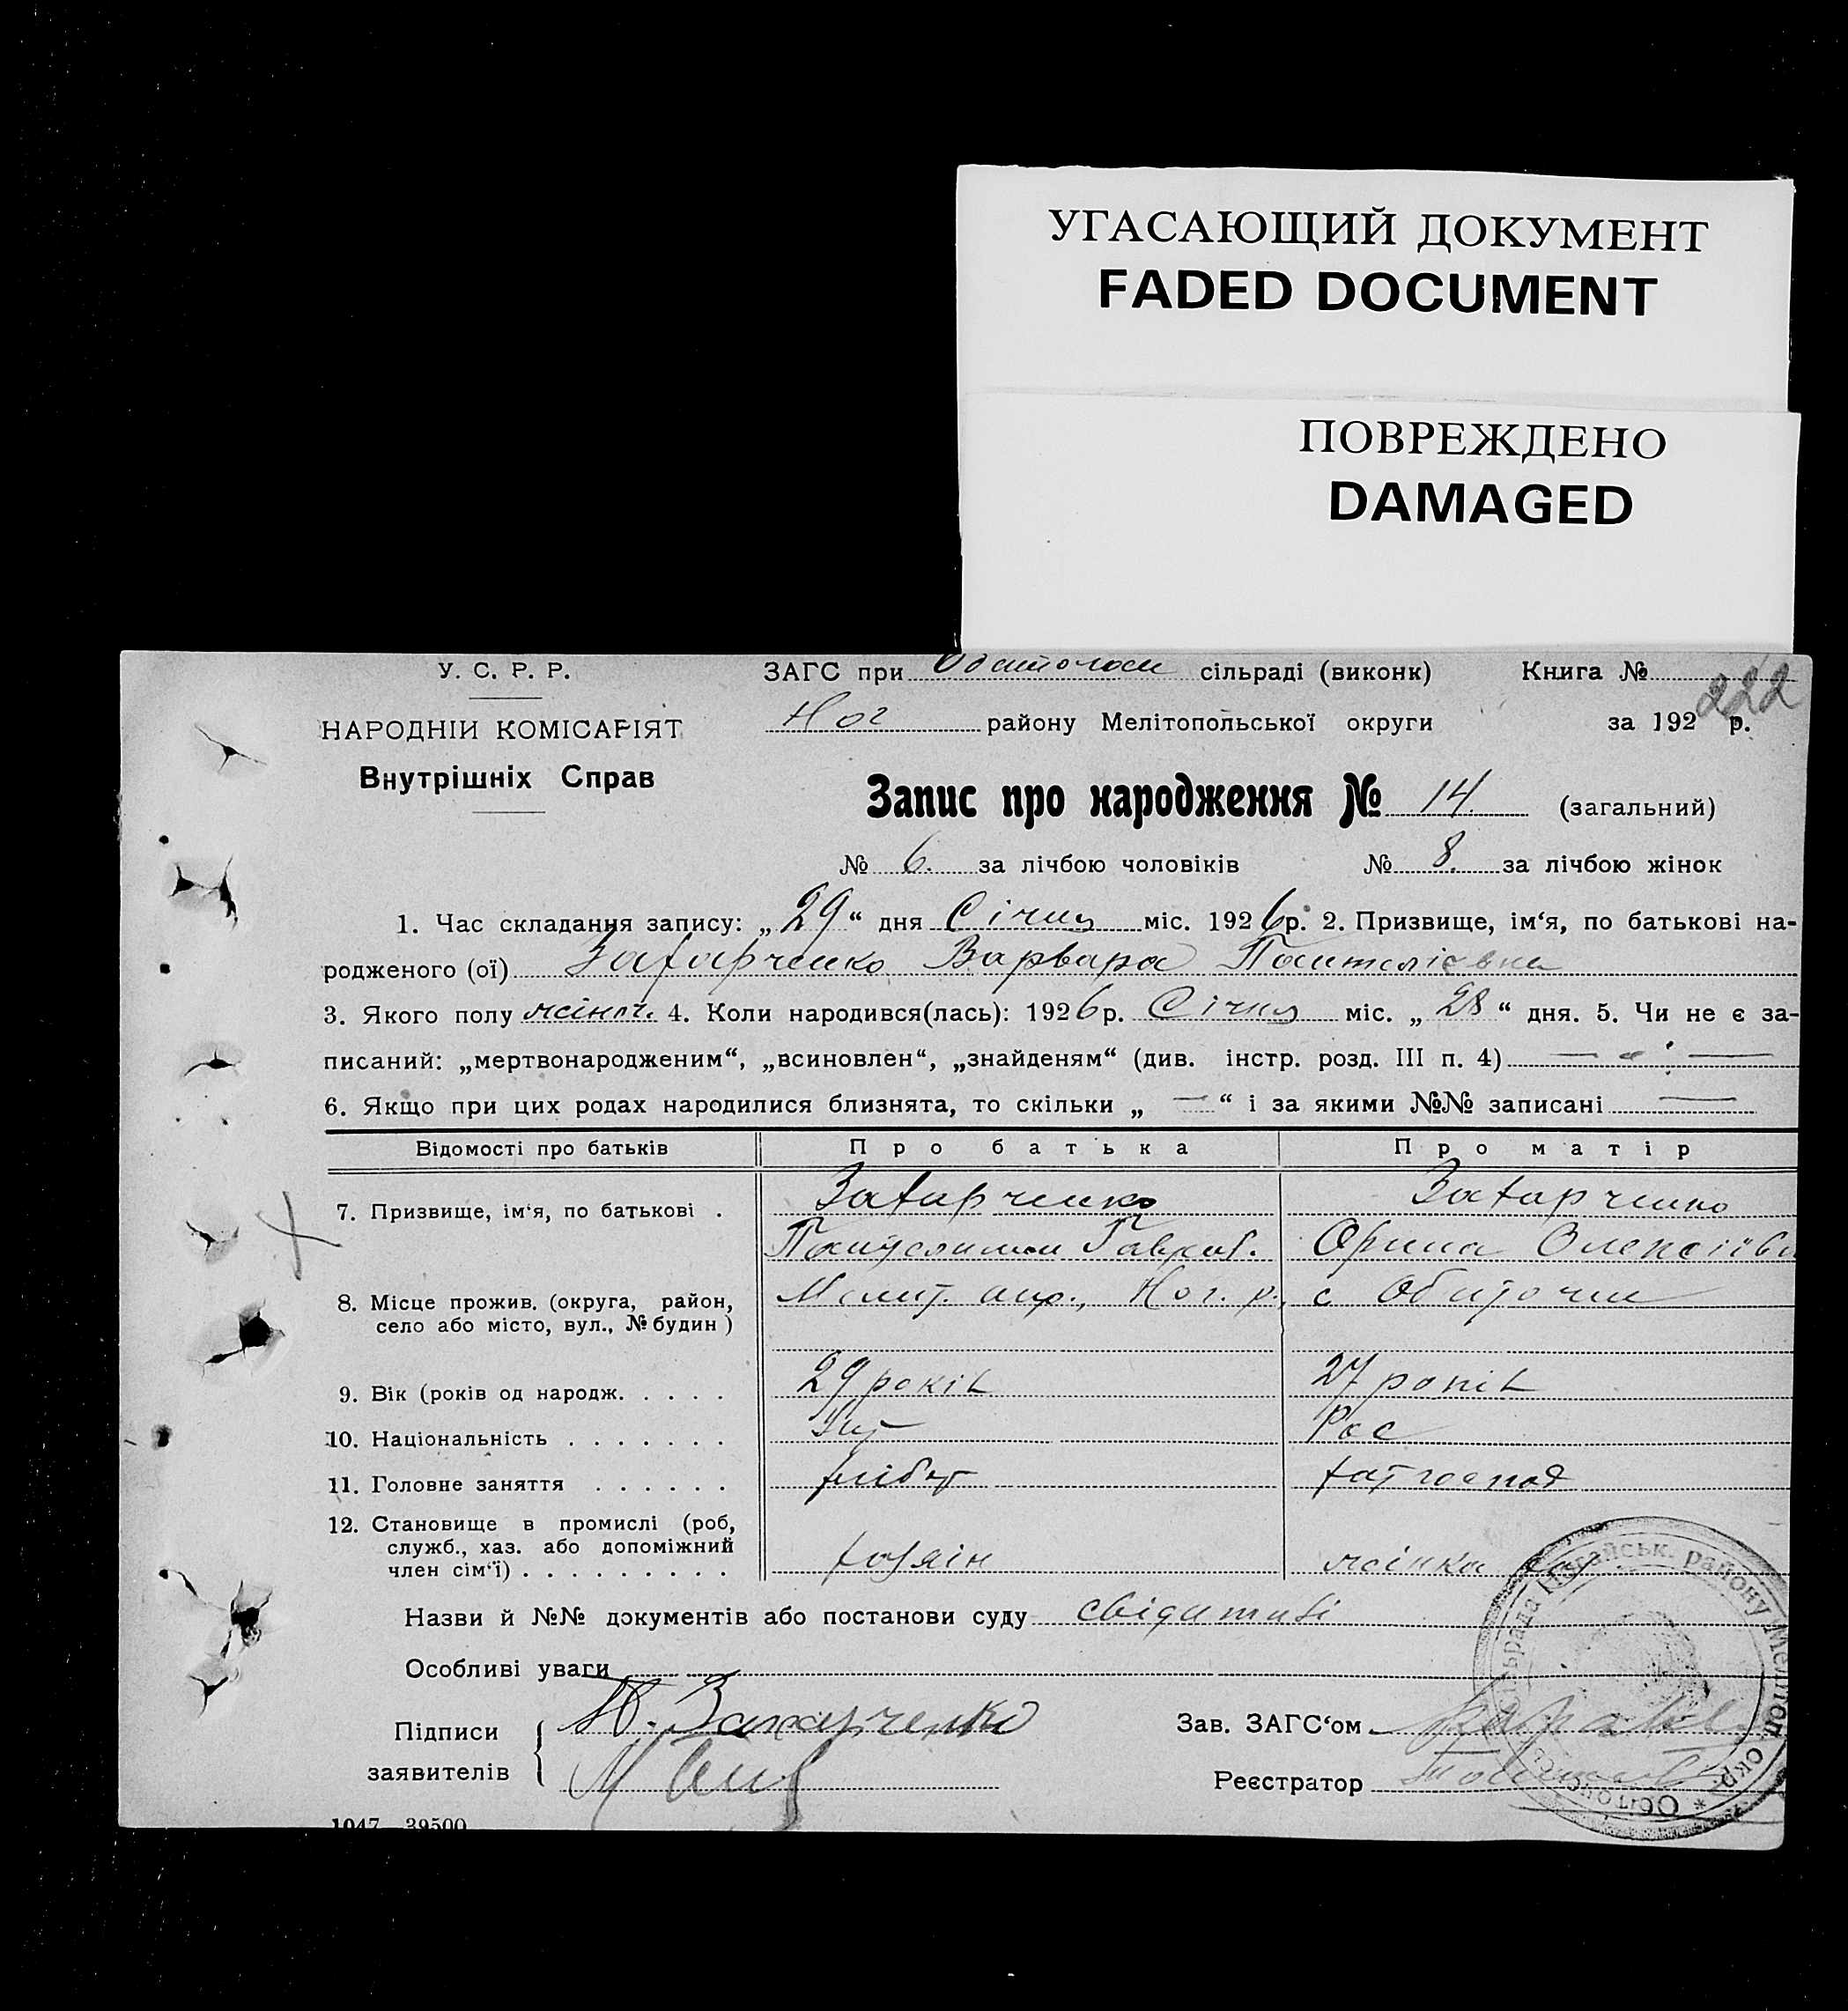 УГАСАЮЩИЙ ДОКУМЕНТ
FADED DOCUMENT
ПОВРЕЖДЕНО
DAMAGED
У. С. Р. Р. ЗАГС при сільраді (виконк) Книга №
222
НАРОДНІЙ КОМІСАРІЯТ Ног району Мелітопольської округи за 192 р.
Внутрішніх Справ
Запис про народження № 14 (загальний)
№ 6. за лічбою чоловіків № 8. за лічбою жінок
1. Час складання запису: „29“ дня Січня міс. 1926 р. 2. Призвище, ім‘я, по батькові на-
родженого (ої) Захарченко Варвара
3. Якого полу жіноч. 4. Коли народився(лась): 1926 р. Січня міс. „28“ дня. 5. Чи не є за-
писаний: „мертвонародженим“, „всиновлен“, „знайденям“ (див. інстр. розд. III п. 4) — „ —
6. Якщо при цих родах народилися близнята, то скільки „ — “ і за якими №№ записані —
Відомості про батьків Про батька Про матір
7. Призвище, ім‘я, по батькові . Захарченко Захарченко
Гаврил. Орина Олексіївн
8. Місце прожив. (округа, район, Меліт. окр., Ног. р., с Обиточни
село або місто, вул., № будин )
9. Вік (років од народж. . . . . 29 років 27 років
10. Національність . . . . . . . Укр Рос
11. Головне заняття . . . . . . хліб хат господ
12. Становище в промислі (роб,
служб., хаз. або допоміжний
член сім‘ї) . . . . . . . . . хазяін жінка
Назви й №№ документів або постанови суду
Особливі уваги
Підписи заявителів Захарченко
Зав. ЗАГС‘ом
Реєстратор
Ногайськ. району Мелітоп. окр.
1047 39500